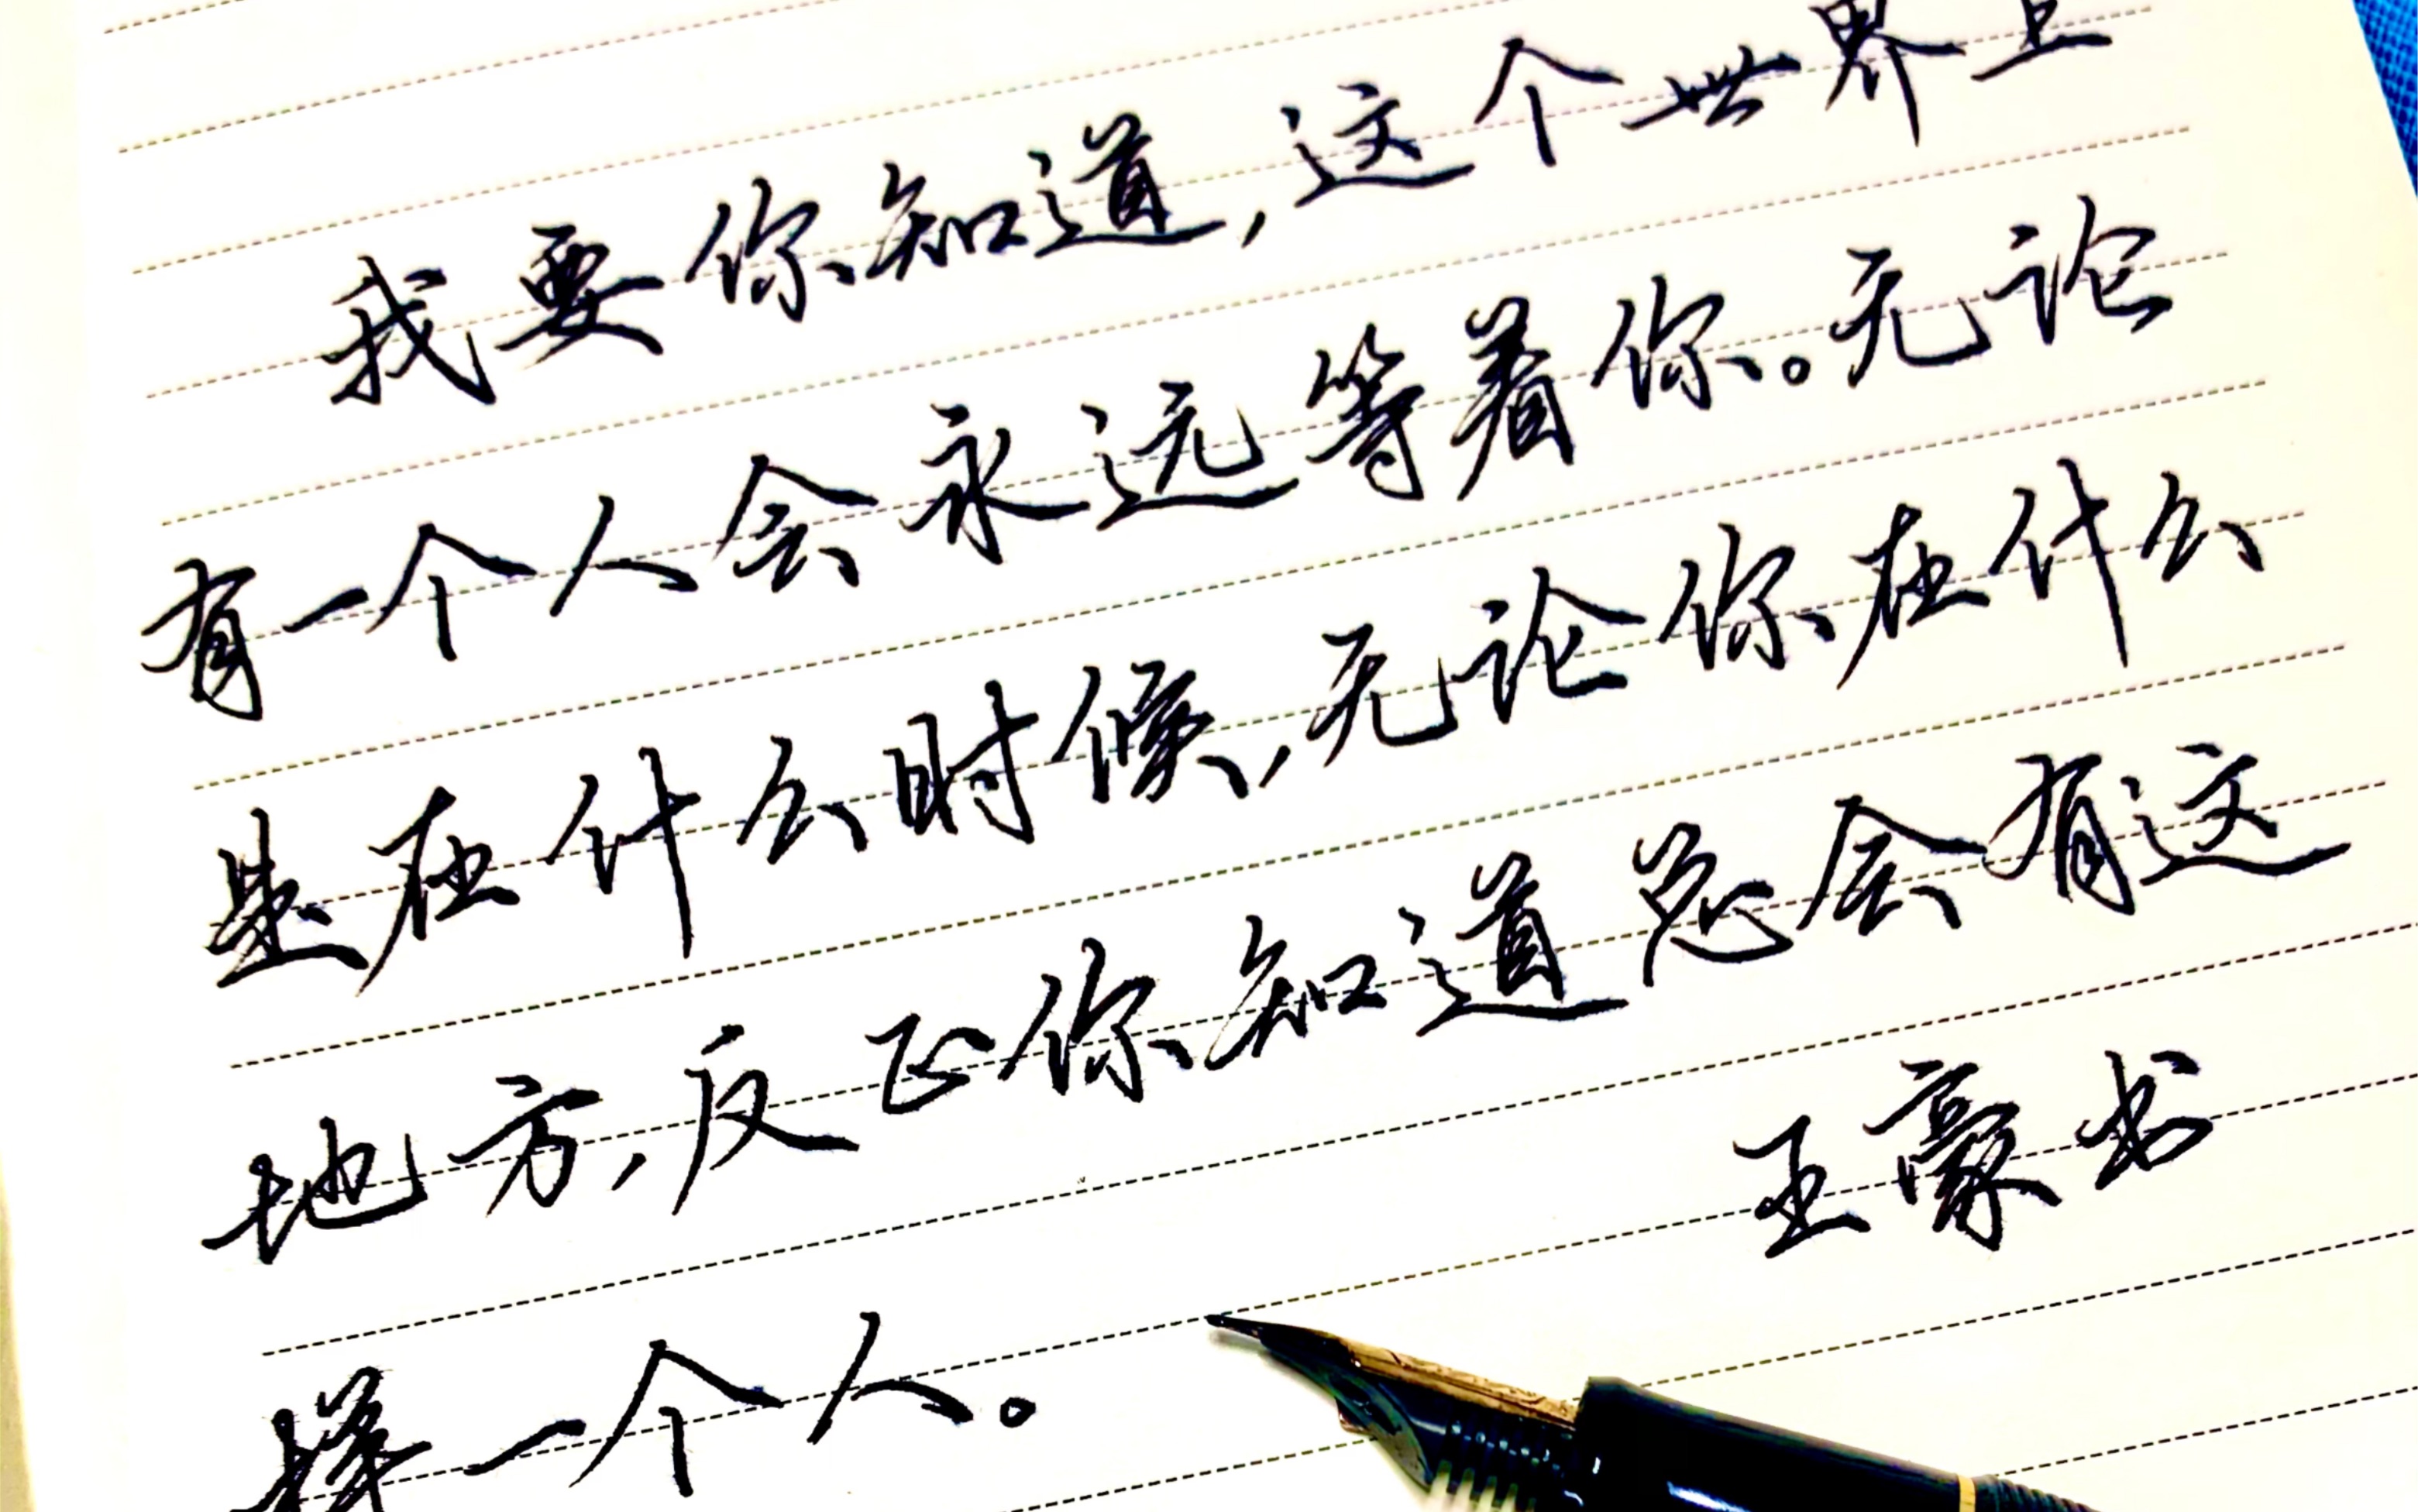 我要你知道,这个世界上
有一个人会永远等着你。无论
是在什么时候,无论你在什么
地方,反正你知道总会有这
样一个人。
王豪书